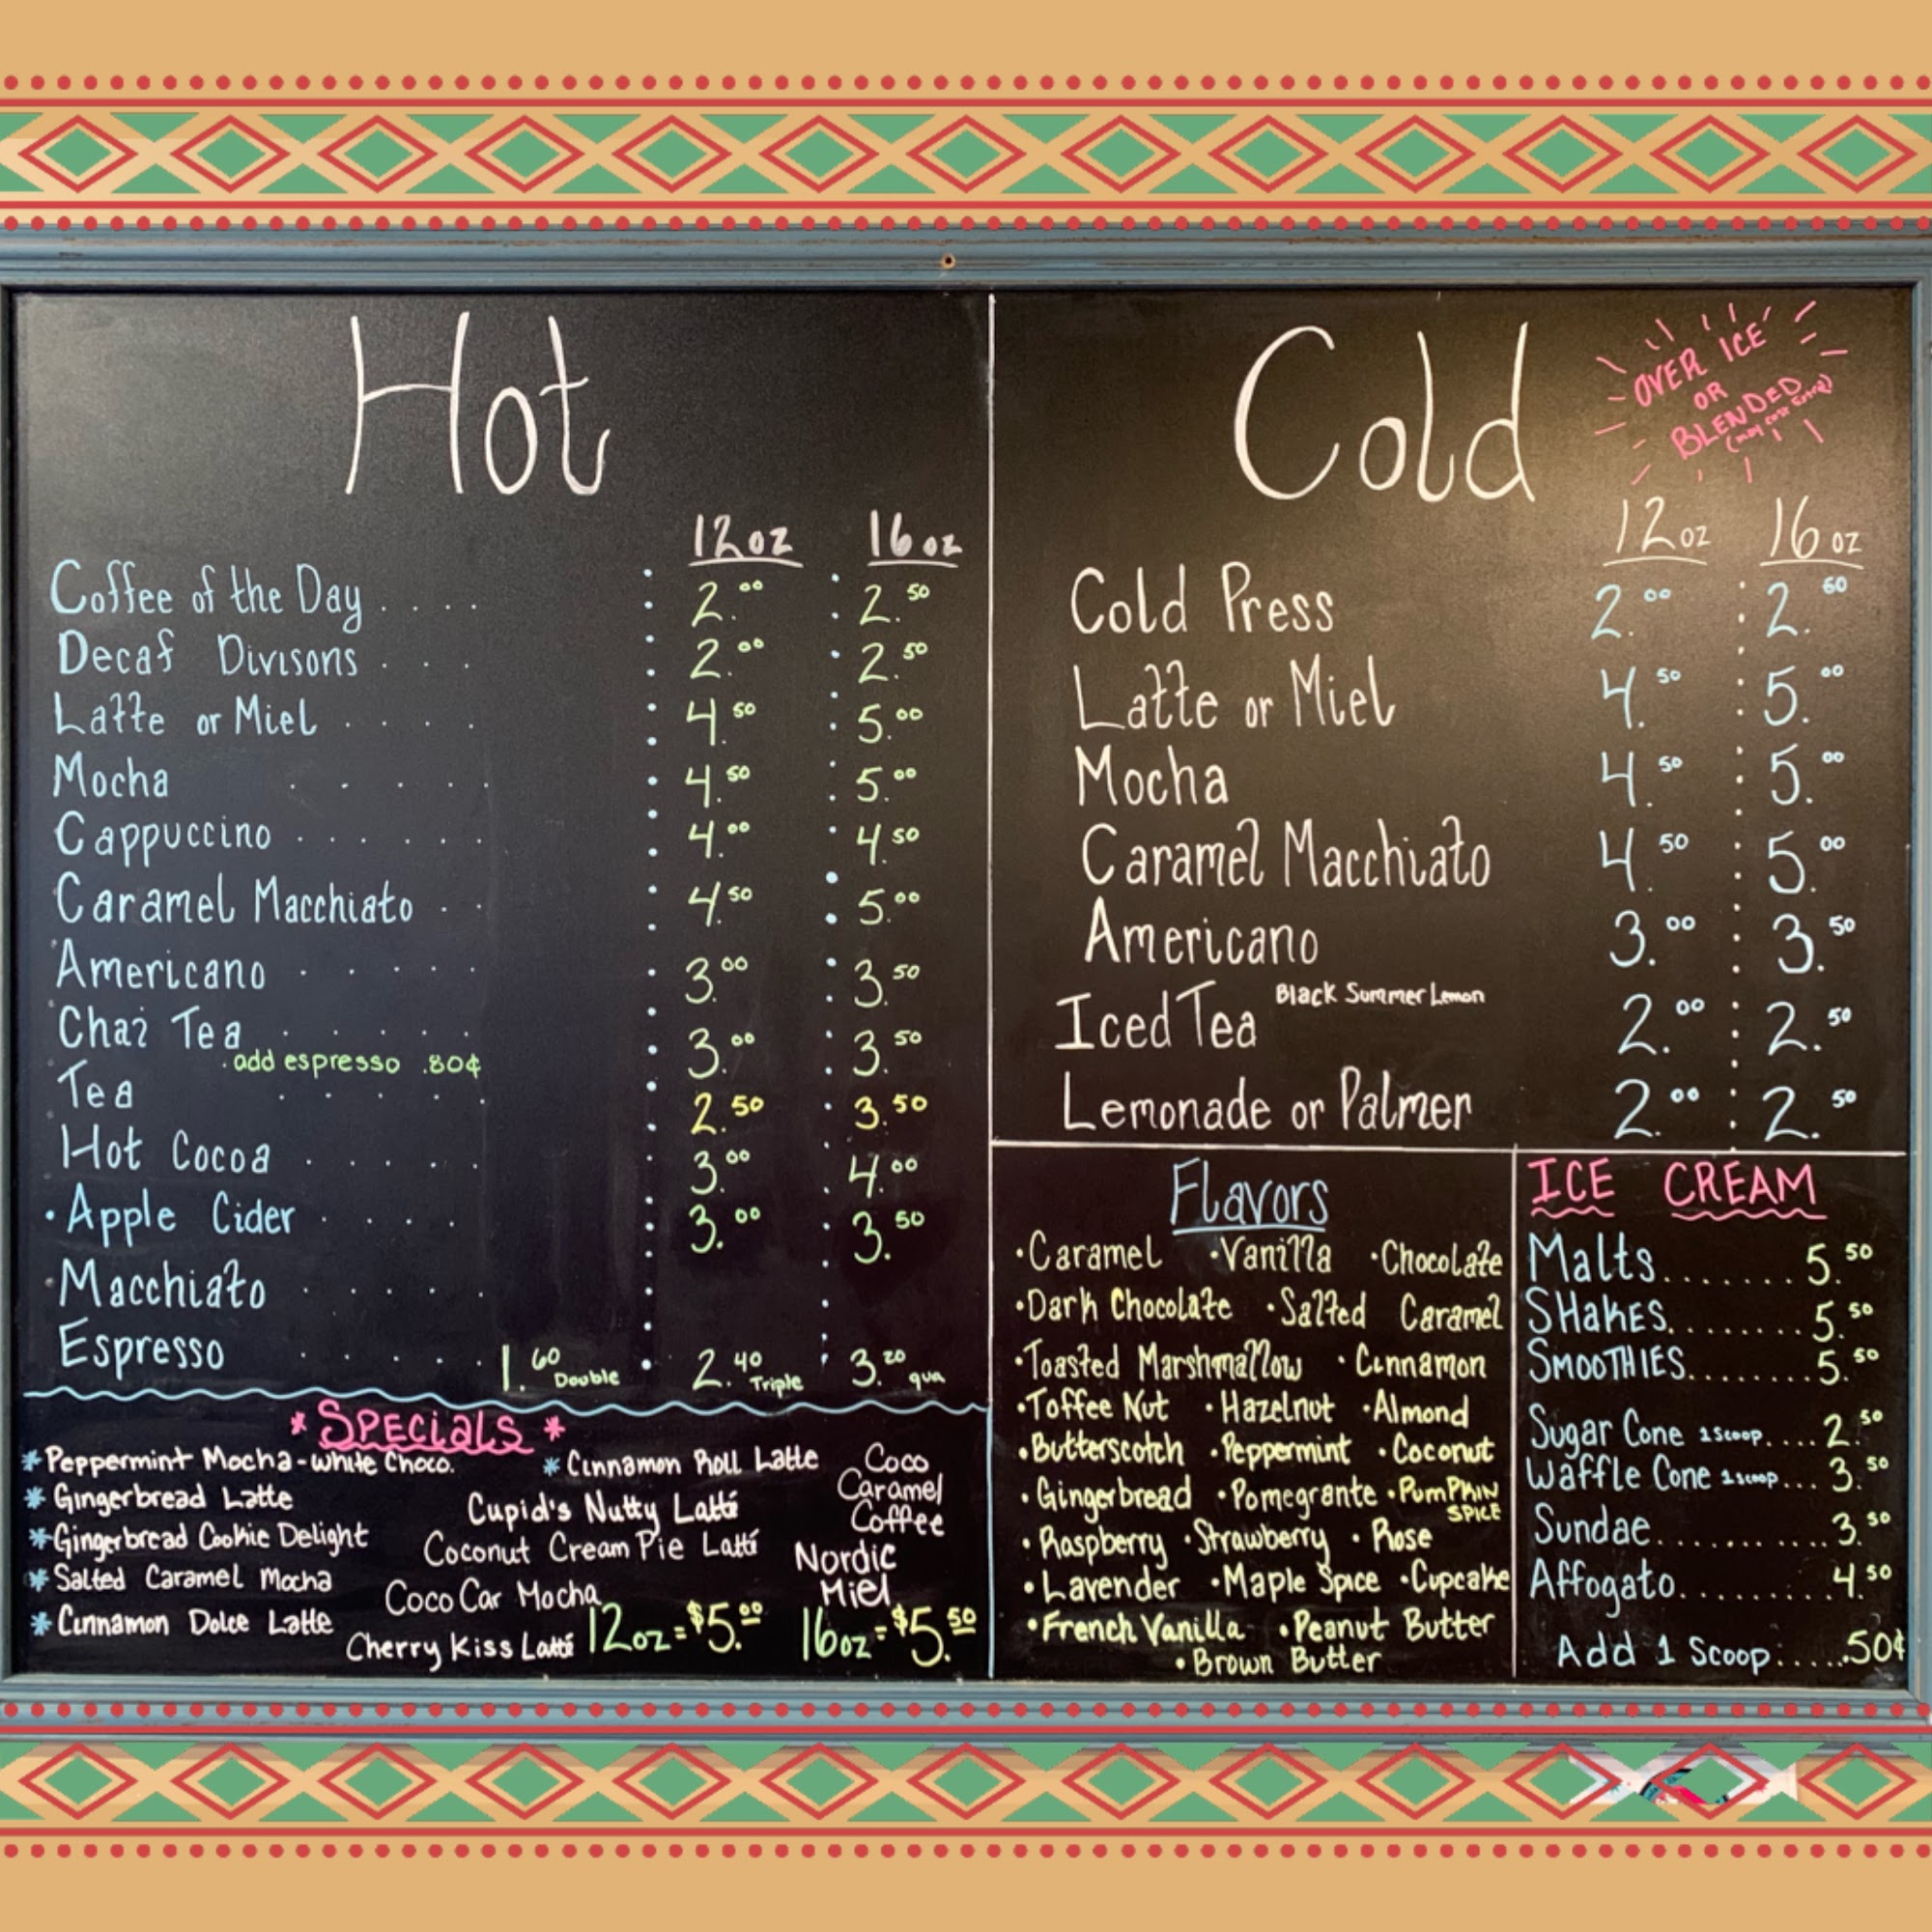 Hot
12oz 16oz
Coffee of the Day .... 2.00 2.50
Decaf Divisons ... 2.00 2.50
Latte or Miel .... 4.50 5.00
Mocha ..... 4.50 5.00
Cappuccino ...... 4.00 4.50
Caramel Macchiato .. 4.50 5.00
Americano ..... 3.00 3.50
Chai Tea ..... 3.00 3.50
.add espresso .80¢
Tea ..... 2.50 3.50
Hot Cocoa ..... 3.00 4.00
•Apple Cider .... 3.00 3.50
•Macchiato .....
Espresso ..... 1.60 Double 2.40 Triple 3.20 qua
*Specials*
*Peppermint Mocha-white Choco.
*Gingerbread Latte
*Gingerbread Cookie Delight
*Salted Caramel Mocha
*Cinnamon Dolce Latte
*Cinnamon Roll Latte
Cupid's Nutty Latté
Coconut Cream Pie Latté
Coco Car Mocha
Cherry Kiss Latté
Coco
Caramel
Coffee
Nordic
Miel
12oz=$5.00 16oz=$5.50
Cold
OVER ICE
OR
BLENDED
(may cost extra)
12oz 16oz
Cold Press 2.00 2.60
Latte or Miel 4.50 5.00
Mocha 4.50 5.00
Caramel Macchiato 4.50 5.00
Americano 3.00 3.50
Iced Tea Black Summer Lemon 2.00 2.50
Lemonade or Palmer 2.00 2.50
Flavors
•Caramel •Vanilla •Chocolate
•Dark Chocolate •Salted Caramel
•Toasted Marshmallow •Cinnamon
•Toffee Nut •Hazelnut •Almond
•Butterscotch •Peppermint •Coconut
•Gingerbread •Pomegrante •PumPkiN SPICE
•Raspberry •Strawberry •Rose
•Lavender •Maple Spice •Cupcake
•French Vanilla •Peanut Butter
•Brown Butter
ICE CREAM
Malts.......5.50
SHakES........5.50
SMOOTHIES........5.50
Sugar Cone 1 scoop....2.50
Waffle Cone 1 scoop...3.50
Sundae...........3.50
Affogato.........4.50
Add 1 Scoop......50¢